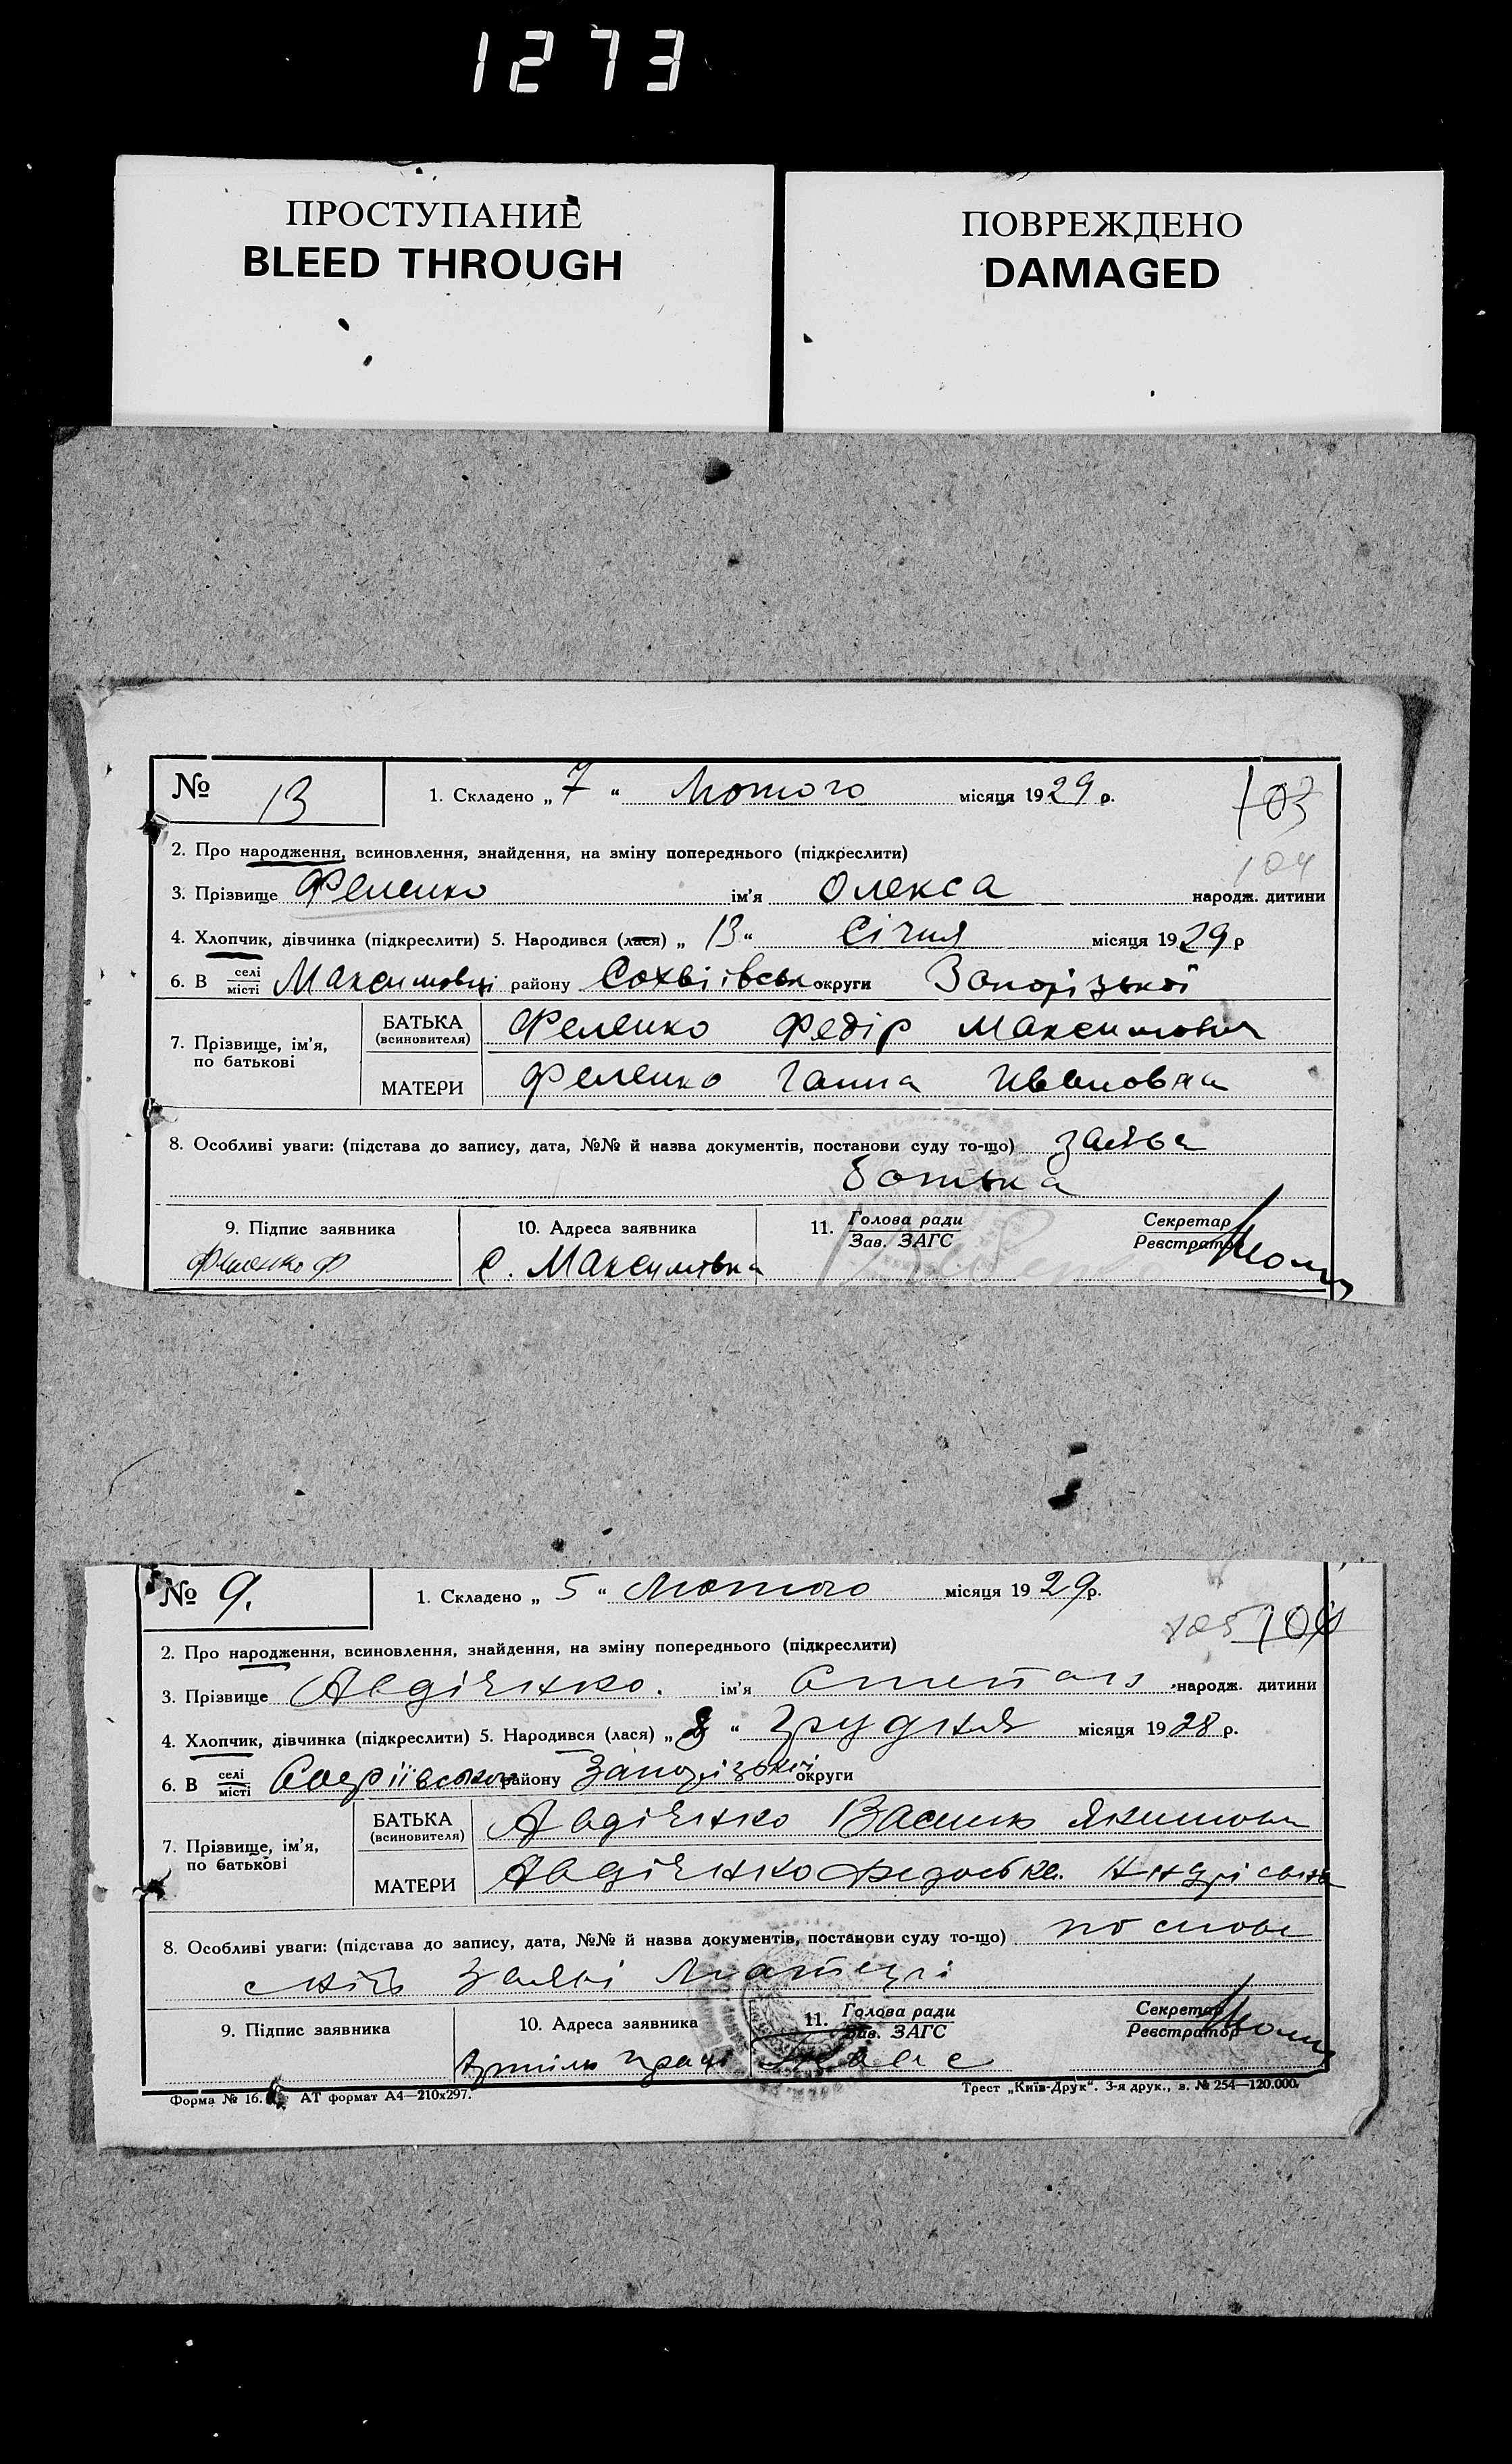 1273
ПРОСТУПАНИЕ
BLEED THROUGH
ПОВРЕЖДЕНО
DAMAGED
№ 13
1. Складено „ 7 “ Лютого місяця 1929 р.
103
104
2. Про народження, всиновлення, знайдення, на зміну попереднього (підкреслити)
3. Прізвище Феленко ім'я Олекса народж. дитини
4. Хлопчик, дівчинка (підкреслити) 5. Народився (лася) „ 13 “ Січня місяця 1929 р
6. В селі/місті Максимовці району округи Запорізької
7. Прізвище, ім'я, по батькові
БАТЬКА (всиновителя) Феленко Федір Максимович
МАТЕРИ Феленко Ганна Ивановна
8. Особливі уваги: (підстава до запису, дата, №№ й назва документів, постанови суду то-що) заява
батька
9. Підпис заявника
10. Адреса заявника
11. Голова ради/Зав. ЗАГС
Секретар/Реєстратор
Феленко Ф
с. Максимівка
№ 9.
1. Складено „ 5 “ Лютого місяця 1929 р.
105 104
2. Про народження, всиновлення, знайдення, на зміну попереднього (підкреслити)
3. Прізвище Авдієнко. ім'я Степан народж. дитини
4. Хлопчик, дівчинка (підкреслити) 5. Народився (лася) „ “ Грудня місяця 1928 р.
6. В селі/місті району Запорізької округи
7. Прізвище, ім'я, по батькові
БАТЬКА (всиновителя) Авдієнко Василь Якимович
МАТЕРИ Авдієнко
8. Особливі уваги: (підстава до запису, дата, №№ й назва документів, постанови суду то-що)
заяві Матері
9. Підпис заявника
10. Адреса заявника
11. Голова ради/Зав. ЗАГС
Секретар/Реєстратор
Форма № 16. АТ формат А4—210х297.
Трест „Київ-Друк“. 3-я друк., з. № 254—120.000.